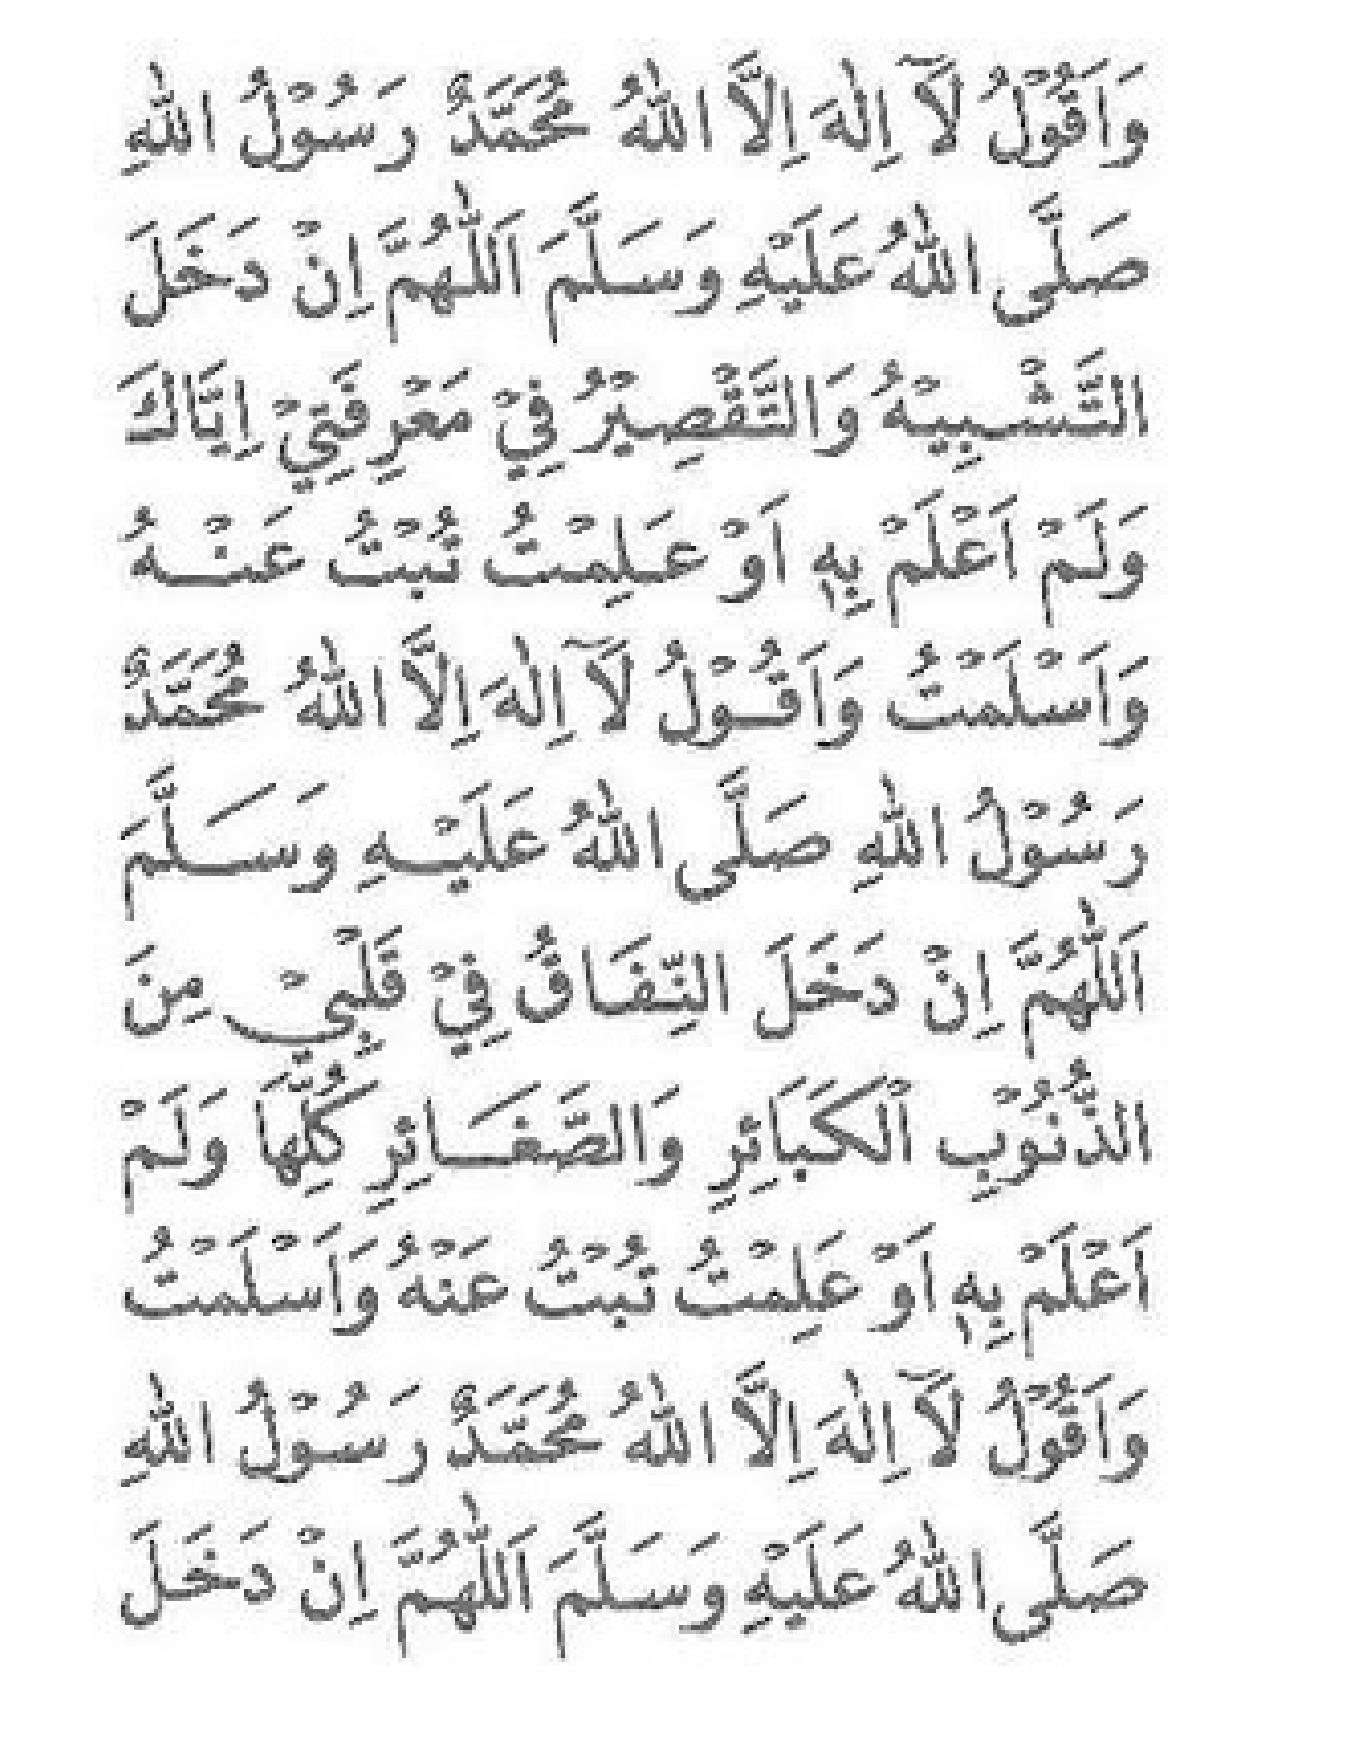 وَاَقُوْلُ لَآ اِلٰهَ اِلَّا اللّٰهُ مُحَمَّدٌ رَسُوْلُ اللّٰهِ
صَلَّى اللّٰهُ عَلَيْهِ وَسَلَّمَ اَللّٰهُمَّ اِنْ دَخَلَ
التَّشْبِيْهُ وَالتَّقْصِيْرُ فِيْ مَعْرِفَتِيْ اِيَّاكَ
وَلَمْ اَعْلَمْ بِهٖ اَوْ عَلِمْتُ تُبْتُ عَنْهُ
وَاَسْلَمْتُ وَاَقُوْلُ لَآ اِلٰهَ اِلَّا اللّٰهُ مُحَمَّدٌ
رَسُوْلُ اللّٰهِ صَلَّى اللّٰهُ عَلَيْهِ وَسَلَّمَ
اَللّٰهُمَّ اِنْ دَخَلَ النِّفَاقُ فِيْ قَلْبِيْ مِنَ
الذُّنُوْبِ اَلْكَبَائِرِ وَالصَّغَائِرِ كُلِّهَا وَلَمْ
اَعْلَمْ بِهٖ اَوْ عَلِمْتُ تُبْتُ عَنْهُ وَاَسْلَمْتُ
وَاَقُوْلُ لَآ اِلٰهَ اِلَّا اللّٰهُ مُحَمَّدٌ رَسُوْلُ اللّٰهِ
صَلَّى اللّٰهُ عَلَيْهِ وَسَلَّمَ اَللّٰهُمَّ اِنْ دَخَلَ